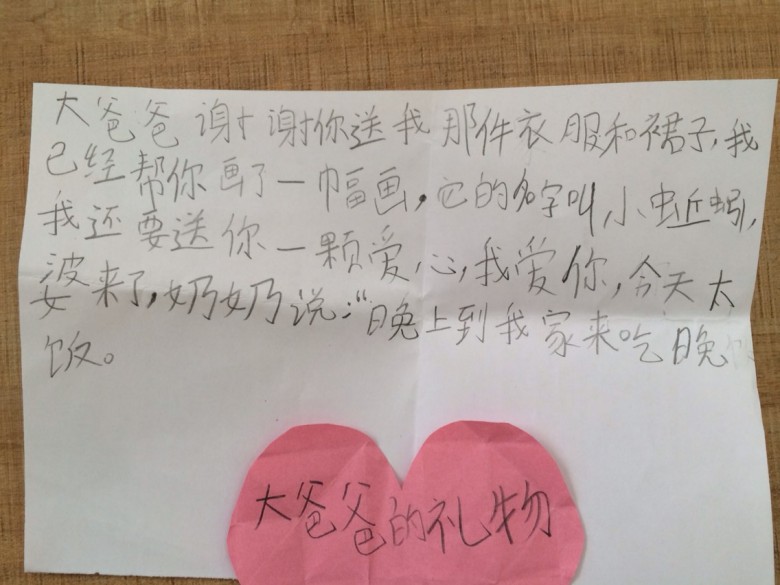 大爸爸谢谢你送我那件衣服和裙子,我
已经帮你画了一幅画,它的名字叫小虫蚯蚓,
我还要送你一颗爱心,我爱你,今天太
婆来了,奶奶说:“晚上到我家来吃晚
饭。
大爸爸的礼物